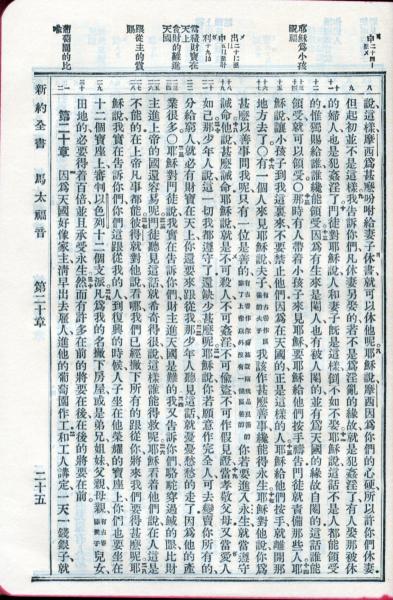 申二十四
耶穌爲小孩祝福
出二十
利十九
當積財寶在天上
貪財的難進天國
跟從主的賞賜
葡萄園的比喻
說這樣摩西爲甚麼吩咐給妻子休書就可以休他呢耶穌說摩西因爲你們的心硬所以許你們休妻
但起初並不是這樣我告訴你們凡休妻另娶的若不是爲淫亂的緣故就是犯姦淫了有人娶那被休
的婦人也是犯姦淫了門徒對耶穌說人和妻子既是這樣倒不如不娶耶穌說這話不是人都能領受
的惟獨賜給誰誰纔能領受因爲有生來是閹人也有被人閹的並有爲天國的緣故自閹的這話誰能
領受就可以領受〇那時有人帶着小孩子來見耶穌要耶穌給他們按手禱告門徒就責備那些人耶
穌說讓小孩子到我這裏來不要禁止他們因爲在天國的正是這樣的人耶穌給他們按手就離開那
地方去了〇有一個人來見耶穌說夫子有古卷作良善的夫子我該作甚麼善事纔能得永生耶穌對他說你爲
甚麼以善事問我呢只有一位是善的有古卷作你爲甚麼稱我是良善的你若要進入永生就當遵守
誡命他說甚麼誡命耶穌說就是不可殺人不可姦淫不可偷盜不可作假見證當孝敬父母又當愛人
如己那少年人說這一切我都遵守了還缺少甚麼呢耶穌說你若願意作完全人可去變賣你所有的
分給窮人就必有財寶在天上你還要來跟從我那少年人聽見這話就憂憂愁愁的走了因爲他的產
業很多〇耶穌對門徒說我實在告訴你們財主進天國是難的我又告訴你們駱駝穿過鍼的眼比財
主進上帝的國還容易呢門徒聽見這話就希奇得很說這樣誰能得救呢耶穌看着他們說在人這是
不能的在上帝凡事都能彼得就對他說看哪我們已經撇下所有的跟從你將來我們要得甚麼呢耶
穌說我實在告訴你們你們這跟從我的人到復興的時候人子坐在他榮耀的寶座上你們也要坐在
十二個寶座上審判以色列十二個支派凡爲我的名撇下房屋或是弟兄姐妹父親母親有古卷添妻子兒女
田地的必要得着百倍並且承受永生然而有許多在前的將要在後在後的將要在前
第二十章 因爲天國好像家主清早出去雇人進他的葡萄園作工和工人講定一天一錢銀子就
新約全書 馬太福音 第二十章 二十五